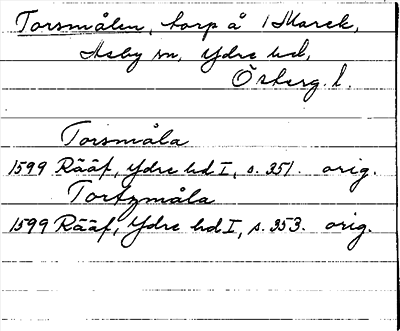 Torsmålen, torp å 1 Marek,
Asby sn, Ydre hd,
Österg. l.
Torsmåla
1599 Rääf, Ydre hd I, s. 351. orig.
Tortzmåla
1599 Rääf, Ydre hd I, s. 353. orig.